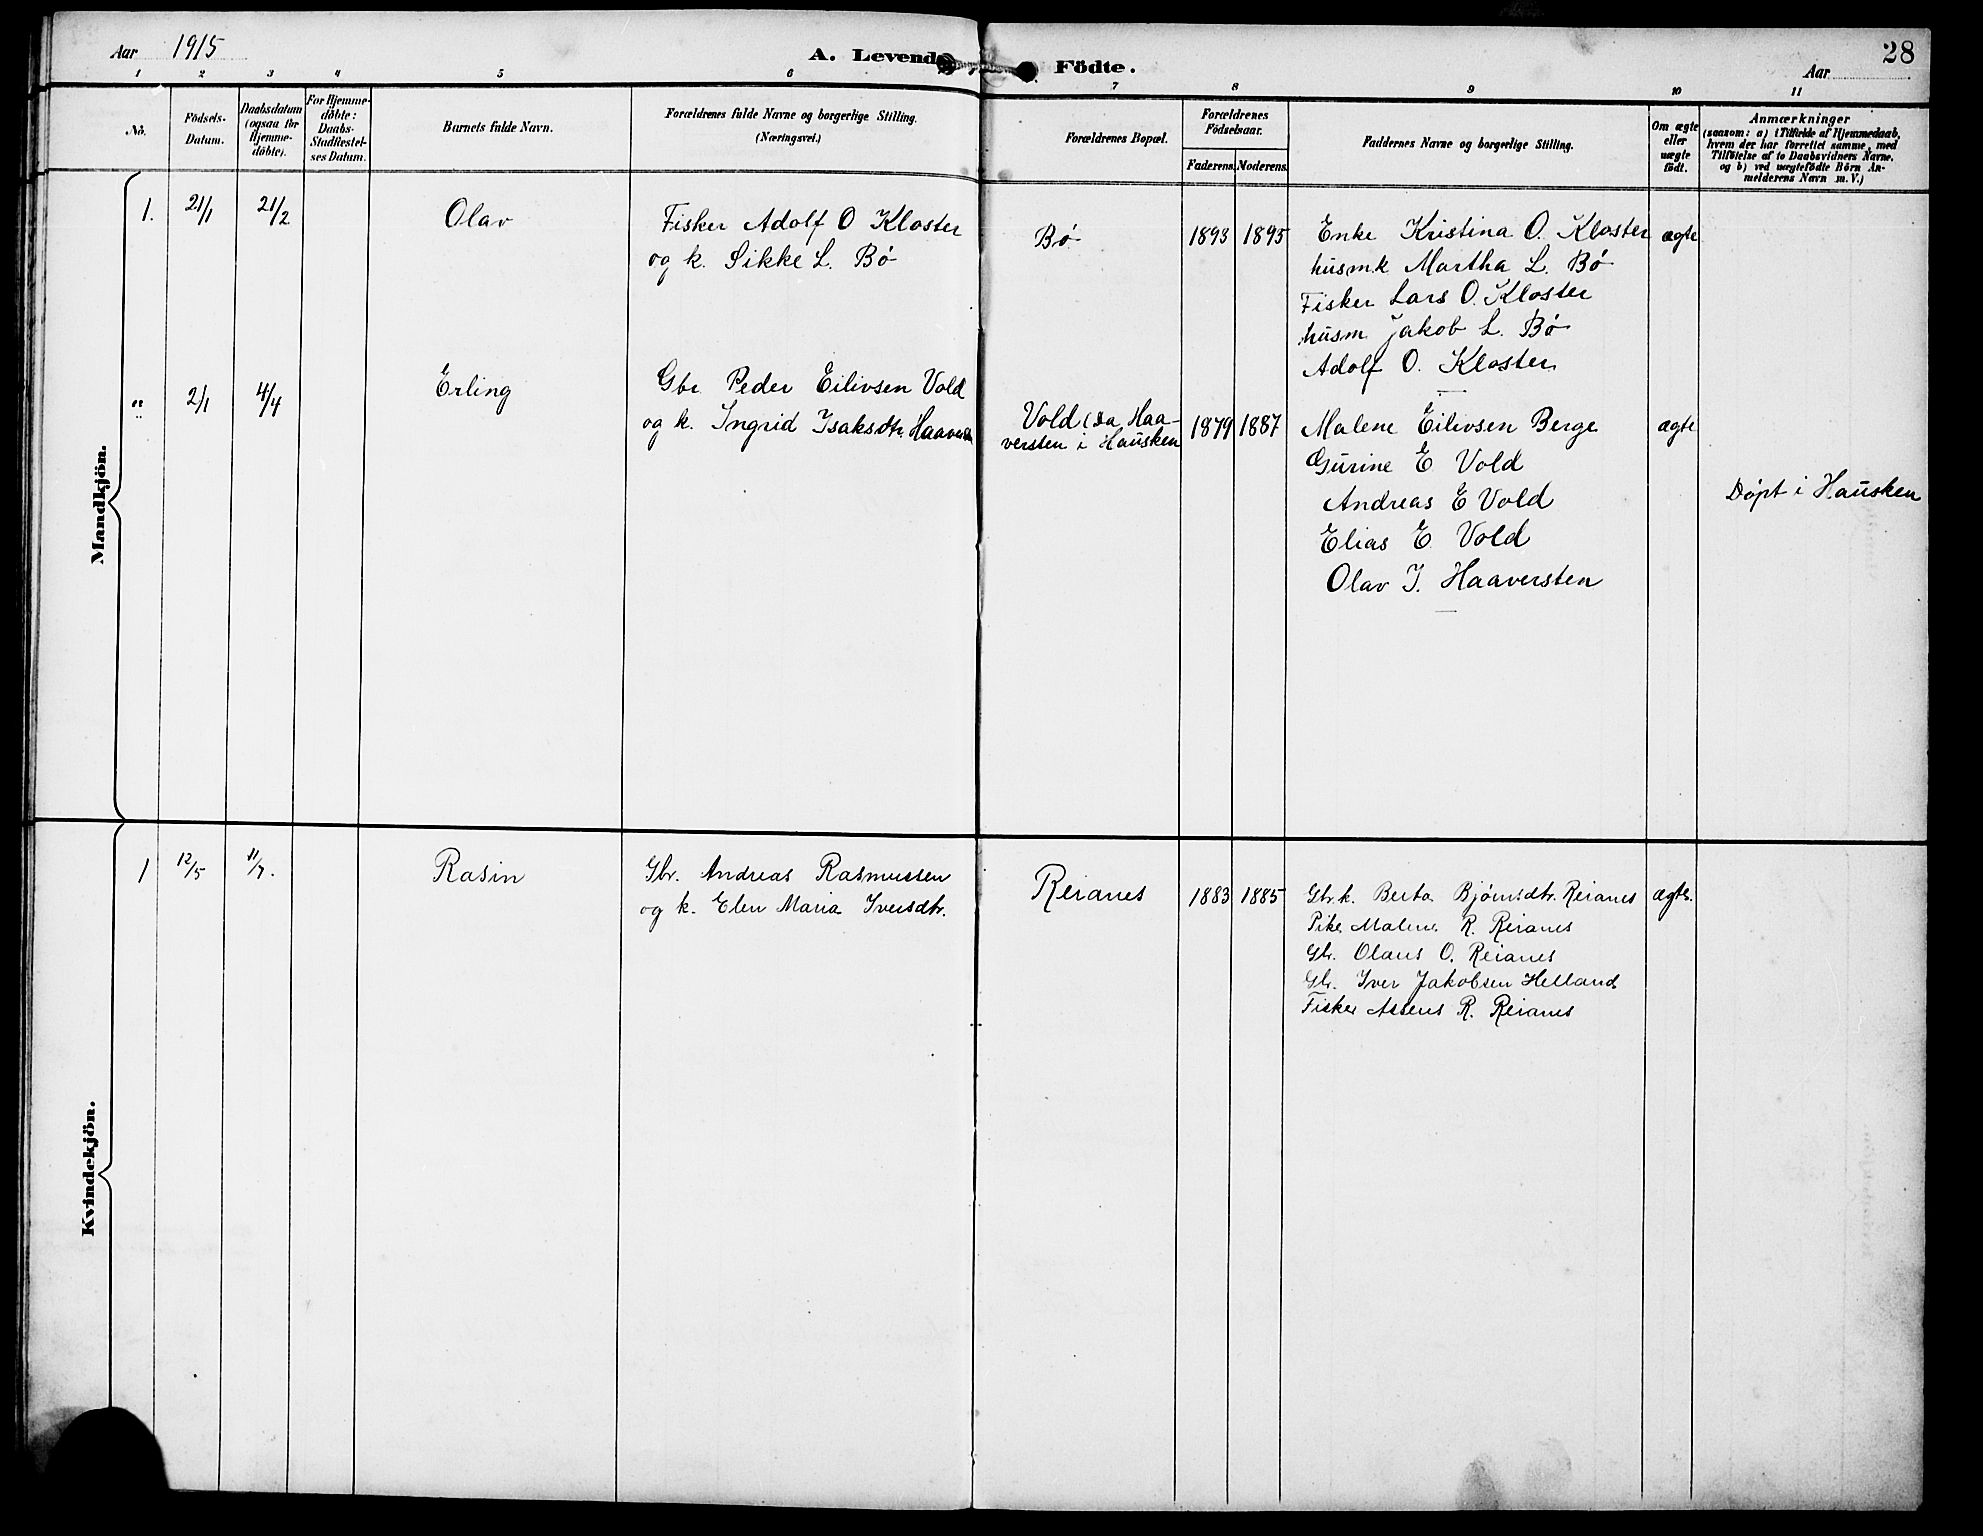 Aar 1915
A. Levende Födte.
Aar
28
1 2 3 4 5 6 7 8 9 10 11
No.
Födsels-
Datum.
Daabsdatum
(ogsaa for
Hjemme-
döbte).
For Hjemme-
döbte:
Daabs-
Stadfæstel-
ses Datum.
Barnets fulde Navn.
Forældrenes fulde Navne og borgerlige Stilling.
(Næringsvei.)
Forældrenes Bopæl.
Forældrenes
Födselsaar.
Faderens. Moderens.
Faddernes Navne og borgerlige Stilling.
Om ægte
eller
uægte
födt.
Anmærkninger
(saasom: a) i Tilfælde af Hjemmedaab,
hvem der har forrettet samme, med
Tilföielse af to Daabsvidners Navne,
og b) ved uægtefödte Börn An-
melderens Navn m. V.)
Mandkjön.
1. 21/1 21/2 Olav
Fisker Adolf O Kloster
og k. Sikke L. Bø
Bø
1893 1895
Enke Kristina O. Kloster
husm.k Martha L. Bø
Fisker Lars O. Kloster
husm Jakob L. Bø
Adolf O. Kloster
ægte
" 2/1 4/4 Erling
Gbr. Peder Eilivsen Vold
og k. Ingrid Isaksdtr. Haaversten
Vold (da Haa-
versten i Hausken
1879 1887
Malene Eilivsen Berge
Gurine E Vold
Andreas E Vold
Elias E. Vold
Olav I. Haaversten
ægte
Døpt i Hausken
Kvindekjön.
1 12/5 11/7. Rasin
Gbr. Andreas Rasmussen
og k. Elen Maria Iversdtr.
Reianes
1883 1885
Gbr.k. Berta Bjørnsdtr. Reianes
Pike Malene R. Reianes
Gbr. Olaus O. Reianes
Gbr. Iver Jakobsen Helland
Fisker Assens R. Reianes
ægte.